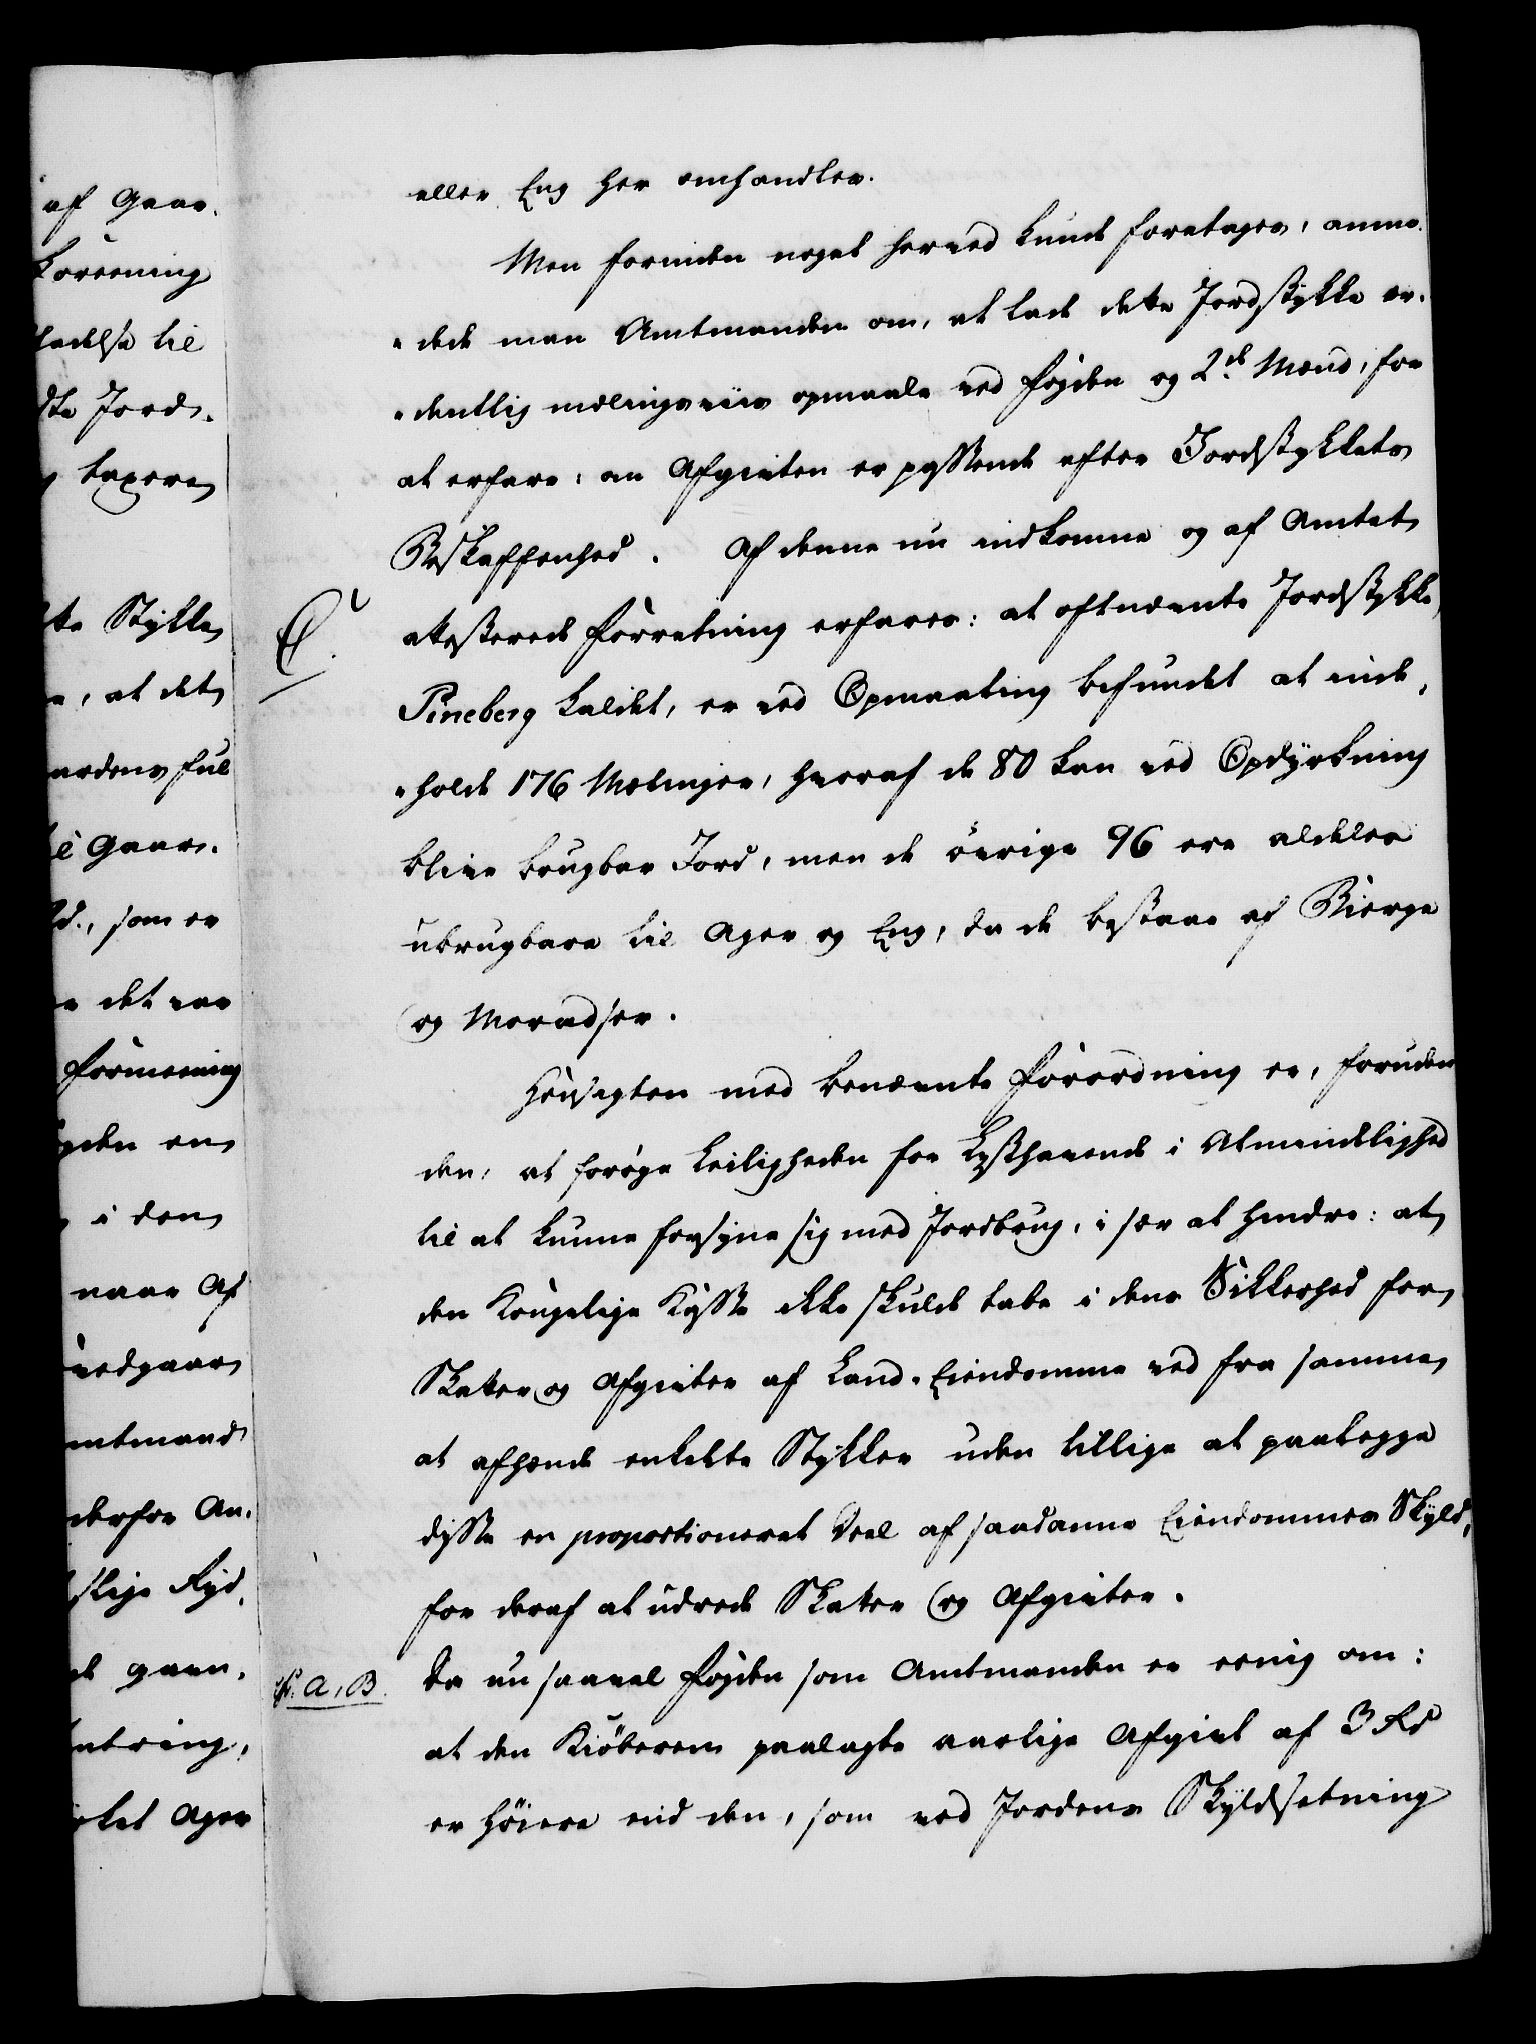 af Gaar-
te Stykke
, at det
til Gaar-
d., som er
det var
Formening
en
i den
naar Af
Amtmand
derfor An-
Ager
eller Eng her omhandler.
Men forinden noget herved kunde foretages, anmo-
-dede man Amtmanden om, at lade dette Jordstykke or-
-dentlig mælingsviis opmaale ved Fogden og 2de Mænd, for
at erfare: om Afgivten er passende efter Jordstykkets
Beskaffenhed. Af denne nu indkomne og af Amtet
C.
attesterede Forretning erfares: at oftnævnte Jordstykke,
Pineberg kaldet, er ved Opmaaling befundet at inde-
-holde 176 Mælinger, hvoraf de 80 kan ved Opdyrkning
blive brugbar Jord, men de övrige 96 ere aldeles
ubrugbare til Ager og Eng, da de bestaae af Bierge
og Moradser.
Hensigten med benævnte Forordning er, foruden
den, at forøge Leiligheden for Lysthavende i Almindelighed
til at kunne forsyne sig med Jordbrug, i sær at hindre: at
den Kongelige Kasse ikke skulde tabe i dens Sikkerhed for
Skatter og Afgivter af Land-Eiendomme ved fra samme
at afhænde enkelte Stykker uden tillige at paalegge
disse en proportioneret Deel af saadanne Eiendommes Skyld,
for deraf at udrede Skatter og Afgivter.
A, B.
Da nu saavel Fogden som Amtmanden er eenig om:
at den Kiöberen paalagte aarlige Afgivt af 3 Rd
er höiere end den, som ved Jordens Skyldsætning